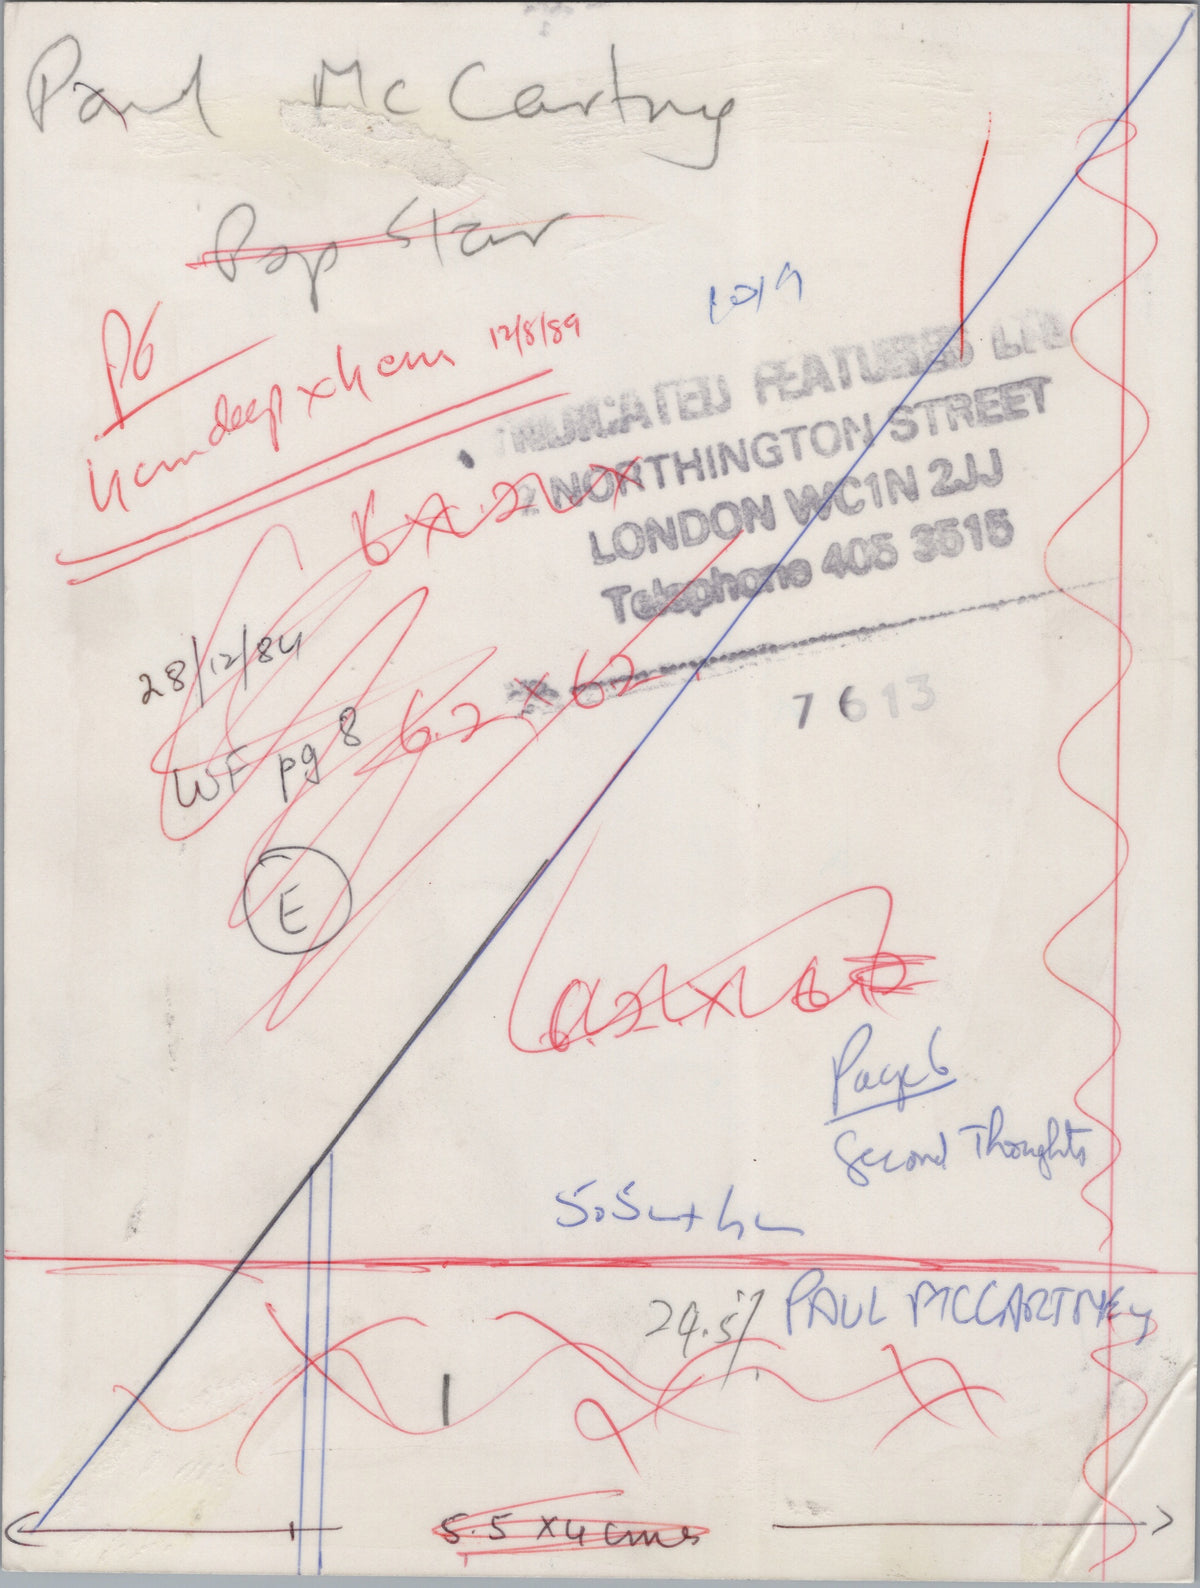 Paul McCartney
Pop Star
P6
4cm deep x 4cm 12/8/89
SYNDICATED FEATURES LTD
2 NORTHINGTON STREET
LONDON WC1N 2JJ
Telephone 405 3515
28/12/84
6.2 x 62
7613
WF pg 8
E
Page 6
Second Thoughts
29.5%
PAUL MCCARTNEY
5.5 x 4 cms